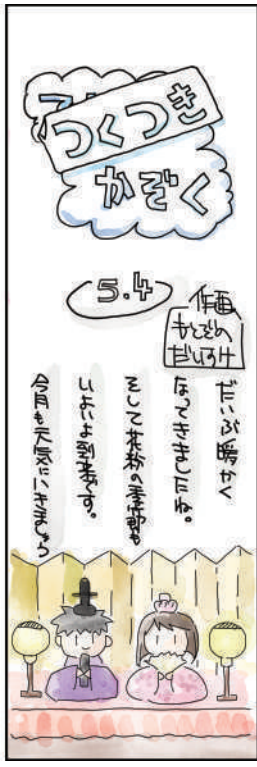 つくつき
かぞく
5.4
作画
もとぞの
だいすけ
だいぶ暖かく
なってきましたね。
そして花粉の季節も
いよいよ到来です。
今月も元気にいきましょう